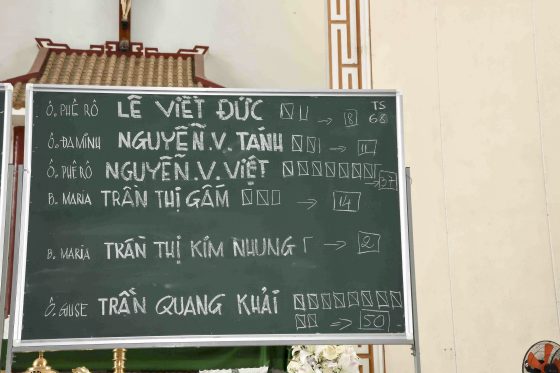 Ô. PHÊ RÔ LÊ VIẾT ĐỨC → 8 TS 68
Ô. ĐAMINH NGUYỄN.V. TÁNH → 11
Ô. PHÊ RÔ NGUYỄN.V. VIỆT → 37
B. MARIA TRẦN THỊ GẤM → 14
B. MARIA TRẦN THỊ KIM NHUNG → 2
Ô. GIUSE TRẦN QUANG KHẢI
→ 50